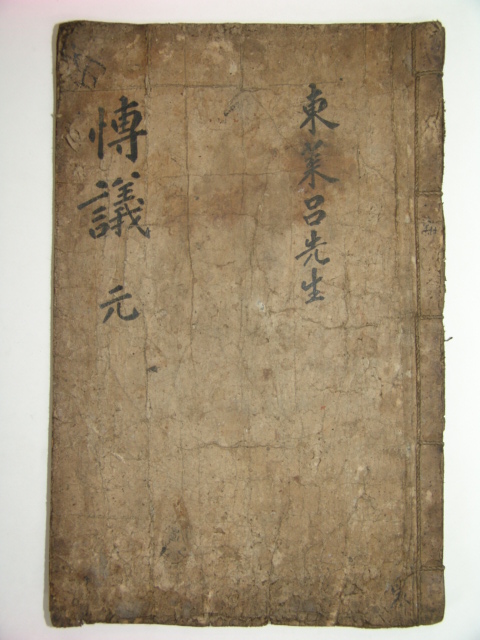 東萊呂先生
愽議 元